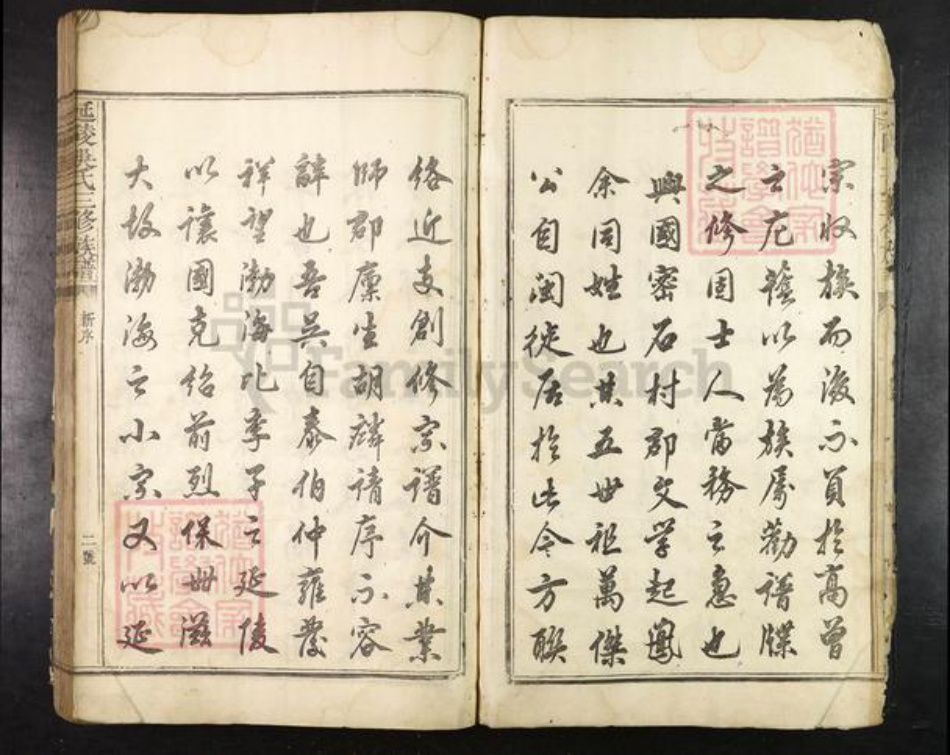 宗收族而後不負於高曾
之庇蔭以為族屬勸譜牒
之修固士人當務之急也
興國密石村郡文學起鳳
余同姓也其五世祖萬傑
公自閩徙居於此今方聯
絡近支創修宗譜介其業
師郡廩生胡麟請序不容
辭也吾吳自泰伯仲雍發
祥望渤海比季子之延陵
以讓國克紹前烈保世滋
大故渤海之小宗又以延
延陵吳氏三修族譜
新序
二號
FamilySearch